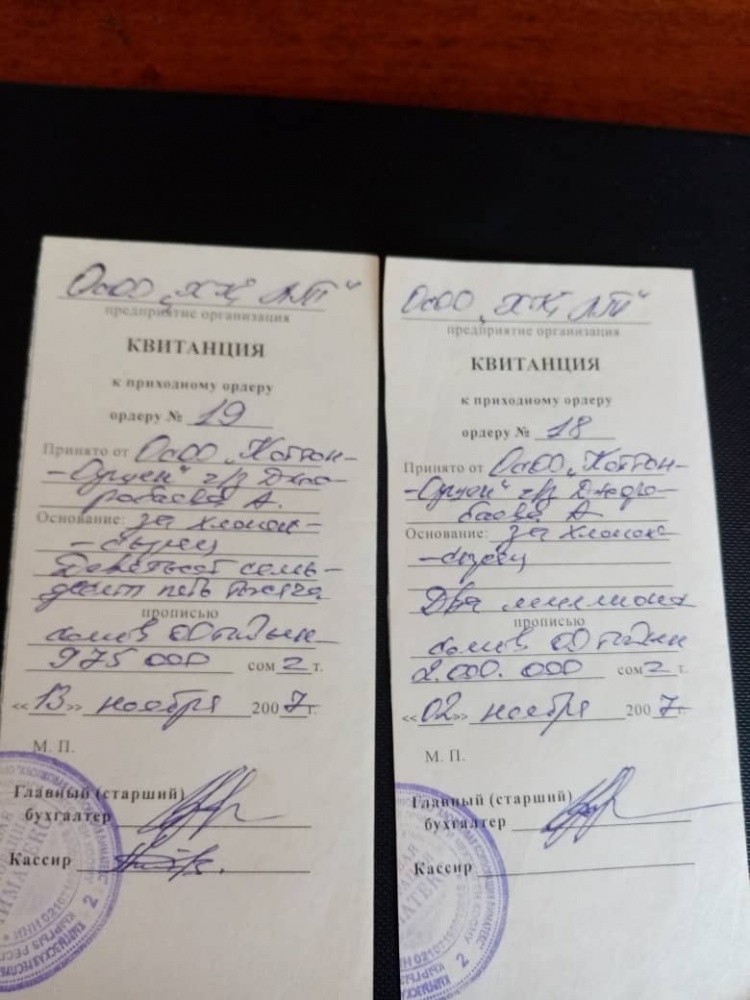 ОсОО „ХК, АТ"
предприятие организация
КВИТАНЦИЯ
к приходному ордеру
ордеру № 19
Принято от ОсОО „Коттон-
г/р
А.
Основание: за хлопок-
-сырец
Девятьсот семь-
десят пять тысяча
прописью
сомов 00 тыйын
975 000 сом т.
«13» ноября 2007 г.
М. П.
Главный (старший)
бухгалтер
Кассир
ОсОО „ХК, АТ"
предприятие организация
КВИТАНЦИЯ
к приходному ордеру
ордеру № 18
Принято от ОсОО „Коттон-
г/р
А
Основание: за хлопок-
-сырец
Два миллиона
прописью
сомов 00 тыйын
2.000.000 сом т.
«02» ноября 2007
М. П.
Главный (старший)
бухгалтер
Кассир